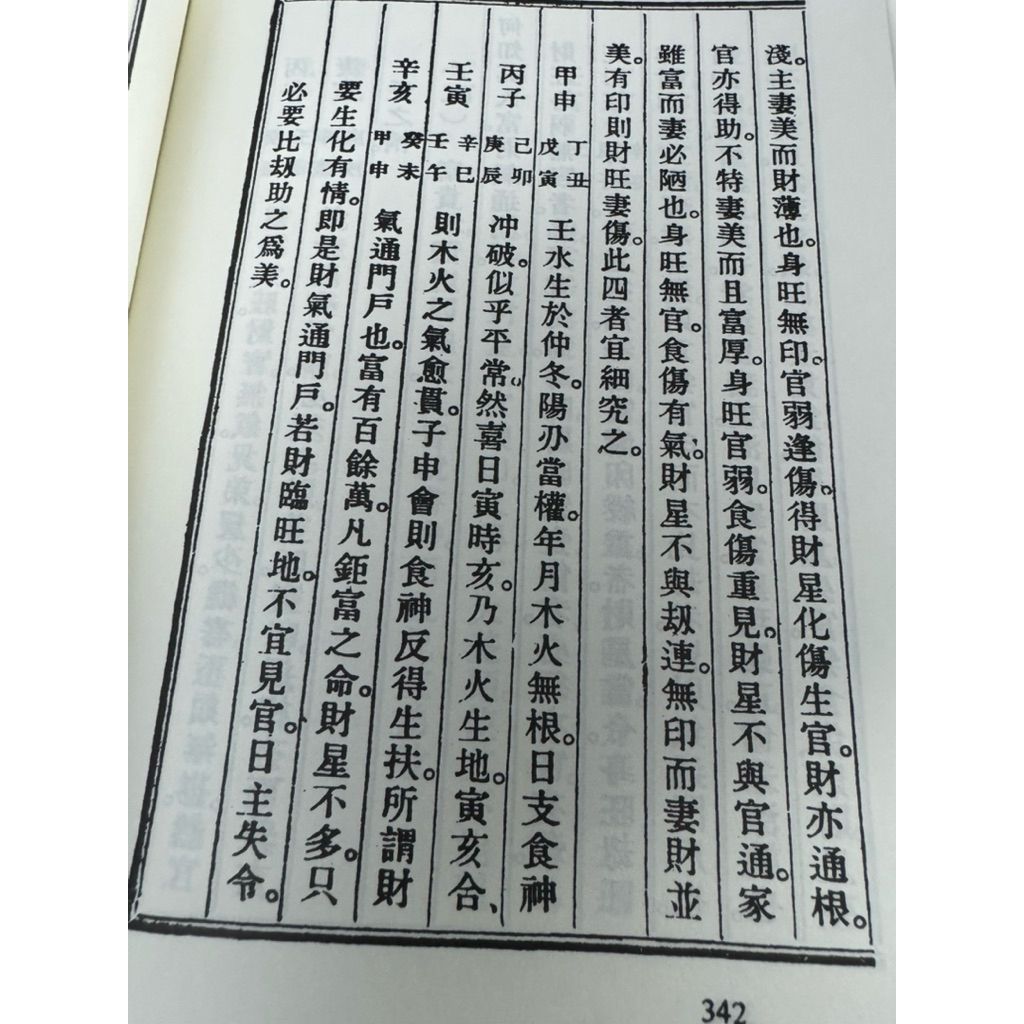 淺。主妻美而財薄也。身旺無印。官弱逢傷。得財星化傷生官。財亦通根。
官亦得助。不特妻美而且富厚。身旺官弱。食傷重見。財星不與官通。家
雖富而妻必陋也。身旺無官。食傷有氣。財星不與刼連。無印而妻財並
美。有印則財旺妻傷。此四者宜細究之。
甲申 丁丑 戊寅 壬水生於仲冬。陽刃當權。年月木火無根。日支食神
丙子 己卯 庚辰 冲破。似乎平常。然喜日寅時亥。乃木火生地。寅亥合、
壬寅 辛巳 壬午 則木火之氣愈貫。子申會則食神反得生扶。所謂財
辛亥 癸未 甲申 氣通門戶也。富有百餘萬。凡鉅富之命。財星不多。只
要生化有情。即是財氣通門戶。若財臨旺地。不宜見官。日主失令。
必要比刼助之爲美。
342